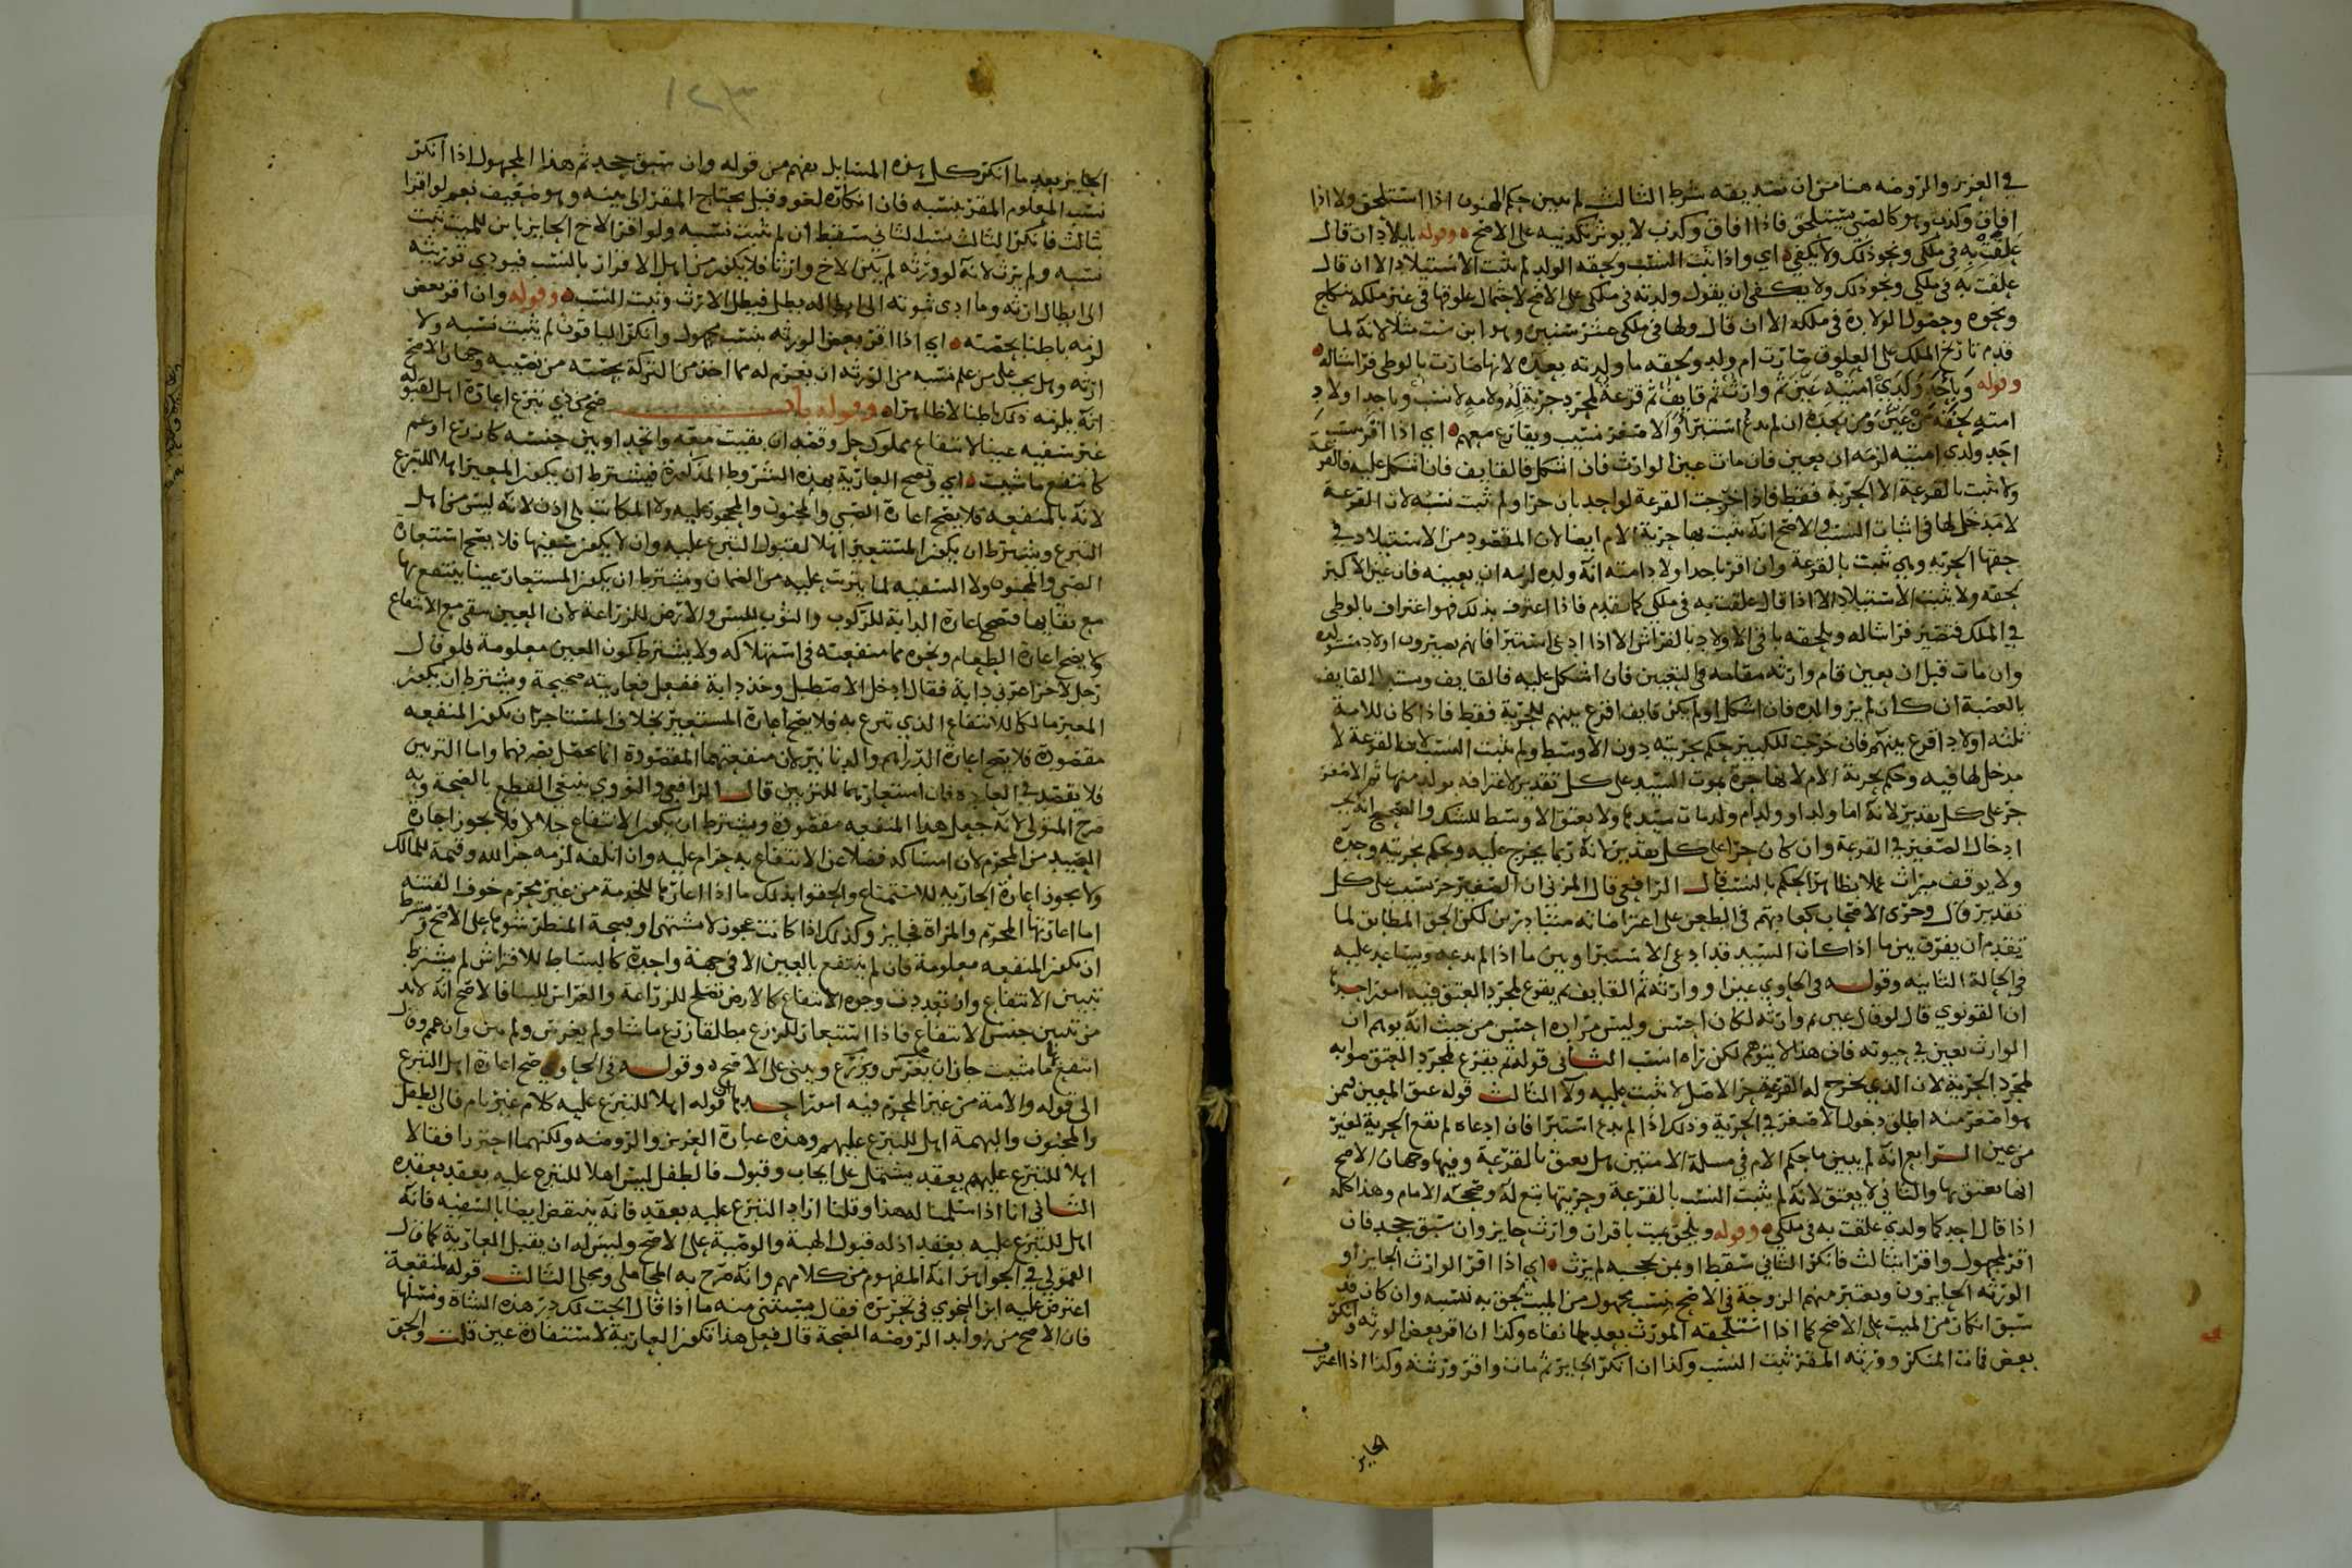 في العزيز والروضه هنا من ان تصديقه شرط الثالث لم يبين حكم المجنون اذا استلحق ولا اذا
افاق وكذب وهو كالصبي يستلحق فاذا افاق وكذب لا يوثر تكذيبه على الاصح وقوله بايلاد ان قال
علقت به في ملكي ونحو ذلك ولا يكفي اي واذا ثبت النسب ولحقه الولد لم يثبت الاستيلاد الا ان قال
علقت به في ملكي ونحو ذلك ولا يكفي ان يقول ولدته في ملكي على الاصح لاحتمال علوقها في غير ملكه بنكاح
ونحوه وحصول الولادة في ملكه الا ان قال ولها في ملكي عشر سنين وهو ابن ست مثلا لانه لما
قدم تاريخ الملك على العلوق صارت ام ولد ولحقه ما ولدته بعده لانها صارت بالوطي فراشا له
وقوله وباحد ولدي امتيه عين ثم وارث ثم قايف ثم قرعة لمجرد حرية له ولامه لا نسب وباحد اولاد
امته لحقه من عين ومن بعده ان لم يدع استبرا والاصغر نسيب ويقارع معهم اي اذا اقر بنسب
احد ولدي امتيه لزمه ان يعين فان مات عين الوارث فان اشكل فالقايف فان اشكل عليه فالقرعة
ولا يثبت بالقرعة الا الحرية فقط فاذا خرجت القرعة لواحد بان حرا ولم يثبت نسبه لان القرعة
لا مدخل لها في اثبات النسب والاصح انه يثبت بها حرية الام ايضا لان المقصود من الاستيلاد في
حقها الحرية وهي تثبت بالقرعة وان اقر باحد اولاد امته انه ولده لزمه ان يعينه فان عين الاكبر
لحقه ولا يثبت الاستيلاد الا اذا قال علقت به في ملكي كما تقدم فاذا اعترف بذلك فهو اعتراف بالوطي
في الملك فتصير فراشا له ويلحقه باقي الاولاد بالفراش الا اذا ادعى استبرا فانهم يصيرون اولاد مستولدة
وان مات قبل ان يعين قام وارثه مقامه في التعيين فان اشكل عليه فالقايف ويستدل القايف
بالعصبة ان كان لم ير والده فان اشكل او لم يكن قايف اقرع بينهم للحرية فقط فاذا كان للامة
ثلثه اولاد اقرع بينهم فان خرجت للكبير حكم بحريته دون الاوسط ولم يثبت النسب لان القرعة لا
مدخل لها فيه وحكم بحرية الام لانها حرة بموت السيد على كل تقدير لاعترافه بولد منها ثم الاصغر
حر على كل تقدير لانه اما ولد او ولد ام ولد مات سيدها ولا يعتق الاوسط للشك والصحيح انه يجب
ادخال الصغير في القرعة وان كان حرا على كل تقدير لانه ربما يخرج عليه ويحكم بحريته وحده
ولا يوقف ميراث عملا بظاهر الحكم بالنسب قال الرافعي قال المزني ان الصغير حر نسيب على كل
تقدير قال وجرى الاصحاب كعادتهم في الطعن على اعتراضاته متبادرين لكن الحق المطابق لما
تقدم ان يفرق بين ما اذا كان السيد قد ادعى الاستبرا وبين ما اذا لم يدعه ويساعد عليه
في الحالة الثانيه وقوله في الحاوي عين او وارثه ثم القايف ثم يقرع لمجرد العتق فيه امور احدها
ان القونوي قال لو قال عين ثم وارثه لكان احسن وليس مراده احسن من حيث انه يوهم ان
الوارث يعين في حيوته فان هذا لا يتوهم لكن راه انسب الثاني قوله ثم يقرع لمجرد العتق صوابه
لمجرد الحرية لان الذي يخرج له القرعة حر الاصل لا يثبت عليه ولا الثالث قوله عتق المعين فمن
هو اصغر منه اطلق دخول الاصغر في الحرية وذلك اذا لم يدع استبرا فان ادعاه لم تقع الحرية لغير
من عين الرابع انه لم يبين ما حكم الام في مسلة الامتين هل يعتق بالقرعة وفيها وجهان الاصح
انها يعتق بها والثاني لا يعتق لانه لم يثبت النسب بالقرعة وحريتها تبع له وصححه الامام وهذا كله
اذا قال احد كما ولدي علقت به في ملكي وقوله ويلحق بميت باقران وارث حايز وان سبق جحد فان
اقر لمجهول واقر بثالث فانكر الثاني سقط او بمن يحجبه لم يرث اي اذا اقر الوارث الحايز او
الورثه الحايزون ويعتبر منهم الزوجة في الاصح بنسب مجهول من الميت لحق به نسبه وان كان قد
سبق انكار من الميت على الاصح كما اذا استلحقه المورث بعد ما نفاه وكذا ان اقر بعض الورثه وانكر
بعض فمات المنكر وورثه المقر ثبت النسب وكذا ان انكر الحايز ثم مات واقر ورثته وكذا اذا اعترف
الحايز
١٢٣
الحايز بعد ما انكر كل هذه المسايل يفهم من قوله وان سبق جحد ثم هذا المجهول اذا انكر
نسب المعلوم المقر بنسبه فان انكاره لغو وقيل يحتاج المقر الى بينه وهو ضعيف نعم لو اقرا
بثالث فانكر الثالث نسب الثاني سقط ان لم يثبت نسبه ولو اقر الاخ الحايز بابن للميت ثبت
نسبه ولم يرث لانه لو ورثه لم يكن الاخ وارثا فلا يكون من اهل الاقرار بالنسب فيودي توريثه
الى ابطال ارثه وما ادى ثبوته الى ابطاله بطل فيبطل الارث وثبت النسب وقوله وان اقر بعض
لزمه باطنا بحصته اي اذا اقر بعض الورثه بنسب مجهول وانكر الباقون لم يثبت نسبه ولا
ارثه وهل يجب على من علم نسبه من الورثه ان يغرم له مما اخذ من التركة بحصته من نصيبه وجهان الاصح
انه يلزمه ذلك باطنا لا ظاهرا وقوله باب صح من ذي تبرع اعارة اهل لقبوله
غير سفيه عينا لانتفاع مملوك حل وقصد ان بقيت معه واتحد او بين جنسه كازرع او عم
كانتفع ما شيت اي وتصح العارية بهذه الشروط المذكورة فيشترط ان يكون المعير اهلا للتبرع
لانه بالمنفعه فلا يصح اعارة الصبي والمجنون والمحجور عليه ولا المكاتب بلا اذن لانه ليس من اهل
التبرع ويشترط ان يكون المستعير اهلا لقبول التبرع عليه وان لا يكون سفيها فلا يصح استعارة
الصبي والمجنون ولا السفيه لما يترتب عليه من الضمان ويشترط ان يكون المستعار عينا ينتفع بها
مع بقايها فتصح اعارة الدابة للركوب والثوب للبس والارض للزراعة لان العين تبقى مع الانتفاع
ولا يصح اعارة الطعام ونحوه مما منفعته في استهلاكه ولا يشترط كون العين معلومة فلو قال
رجل لاخر اعرني دابة فقال ادخل الاصطبل وخذ دابة ففعل فعاريته صحيحة ويشترط ان يكون
المعير مالكا للانتفاع الذي تبرع به فلا يصح اعارة المستعير بخلاف المستاجر ان تكون المنفعه
مقصودة فلا يصح اعارة الدراهم والدنانير لان منفعتهما المقصودة انما تحصل بصرفهما واما التزيين
فلا يقصد في العاده فان استعارهما للتزيين قال الرافعي والنووي ينبغي القطع بالصحة وبه
صرح المتولي لانه جعل هذا المنفعه مقصودة ويشترط ان يكون الانتفاع حلالا فلا يجوز اعارة
الصيد من المحرم لان امساكه فضلا عن الانتفاع به حرام عليه وان اتلفه لزمه جزا لله وقيمة للمالك
ولا يجوز اعارة الجاريه للاستمتاع والحقوا بذلك ما اذا اعارها للخدمة من غير محرم خوف الفتنه
اما اعارتها المحرم والمراة فجايز وكذلك اذا كانت عجوز لا تشتهى او قبيحة المنظر شوها على الاصح ويشترط
ان تكون المنفعه معلومة فان لم ينتفع بالعين الا في جهة واحدة كالبساط للافتراش لم يشترط
تبيين الانتفاع وان تعددت وجوه الانتفاع كالارض تصلح للزراعة والغراس للبنا فالاصح انه لا بد
من تبيين جنس الانتفاع فاذا استعار للزرع مطلقا زرع ما شا ولم يغرس ولم يبن وان عم وقال
انتفع بها ما شيت جاز ان يغرس ويزرع ويبني على الاصح وقوله في الحاوي صح اعارة اهل التبرع
الى قوله والامة من غير المحرم فيه امور احدها ان قوله اهلا للتبرع عليه كلام غير تام فان الطفل
والمجنون والبهيمة اهل للتبرع عليهم وهذه عبارة العزيز والروضه ولكنهما احترزا فقالا
اهلا للتبرع عليهم بعقد يشتمل على ايجاب وقبول فالطفل ليس اهلا للتبرع عليه بعقد يعقده
الثاني انا اذا سلمنا له هذا وقلنا اراد التبرع عليه بعقد فانه ينتقض ايضا بالسفيه فانه
اهل للتبرع عليه بعقد اذ له قبول الهبة والوصية على الاصح وليس له ان يقبل العارية كما قال
القمولي في الجواهر انه المفهوم من كلامهم وانه صرح به المحاملي ومجلي الثالث قوله لمنفعة
اعترض عليه ابن النحوي في تحريره فقال يستثنى منه ما اذا قال ابحت لك در هذه الشاة ونسلها
فان الاصح من زوايد الروضه الصحة قال فعل هذا تكون العارية لاستفادة عين قلت والحق